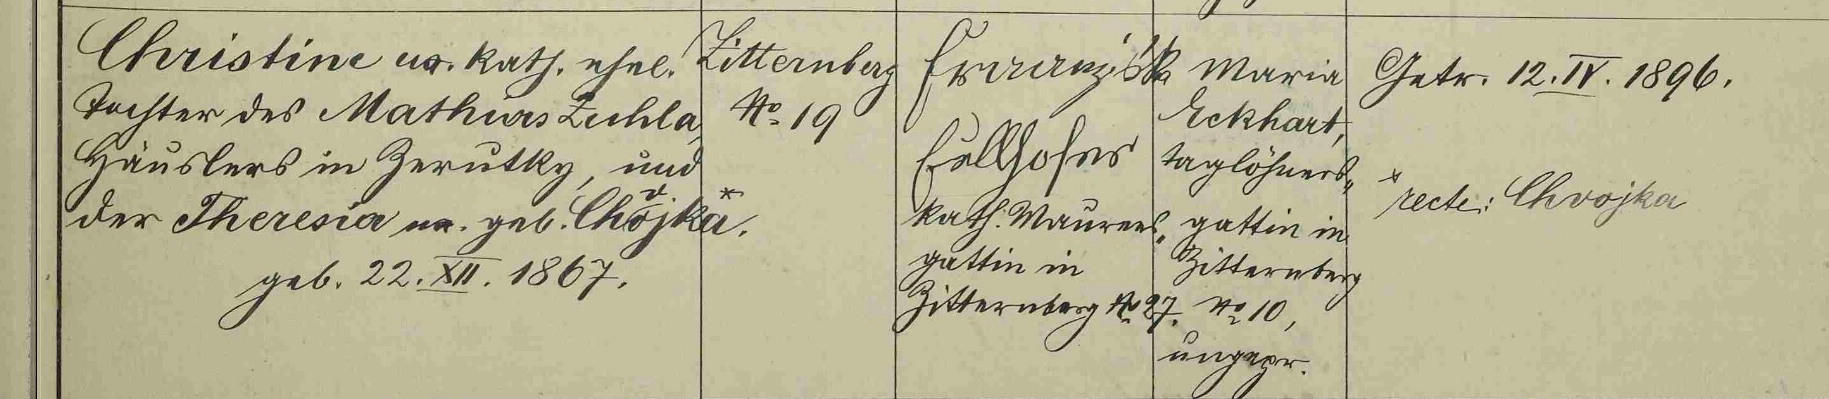 Christine ux. kath. ehel.
Tochter des Mathias Zuhla,
Häuslers in Zerutky, und
der Theresia ux. geb. Chojka.*
v
geb. 22. XII. 1867.
Zitternberg
No 19
Franziska
Füllhofer
kath. Maurers„
gattin in
Zitternberg No 27.
Maria
Eckhart,
Taglöhners„
gattin in
Zitternberg
No 10,
ungepr.
Getr. 12. IV. 1896.
* recte: Chvojka